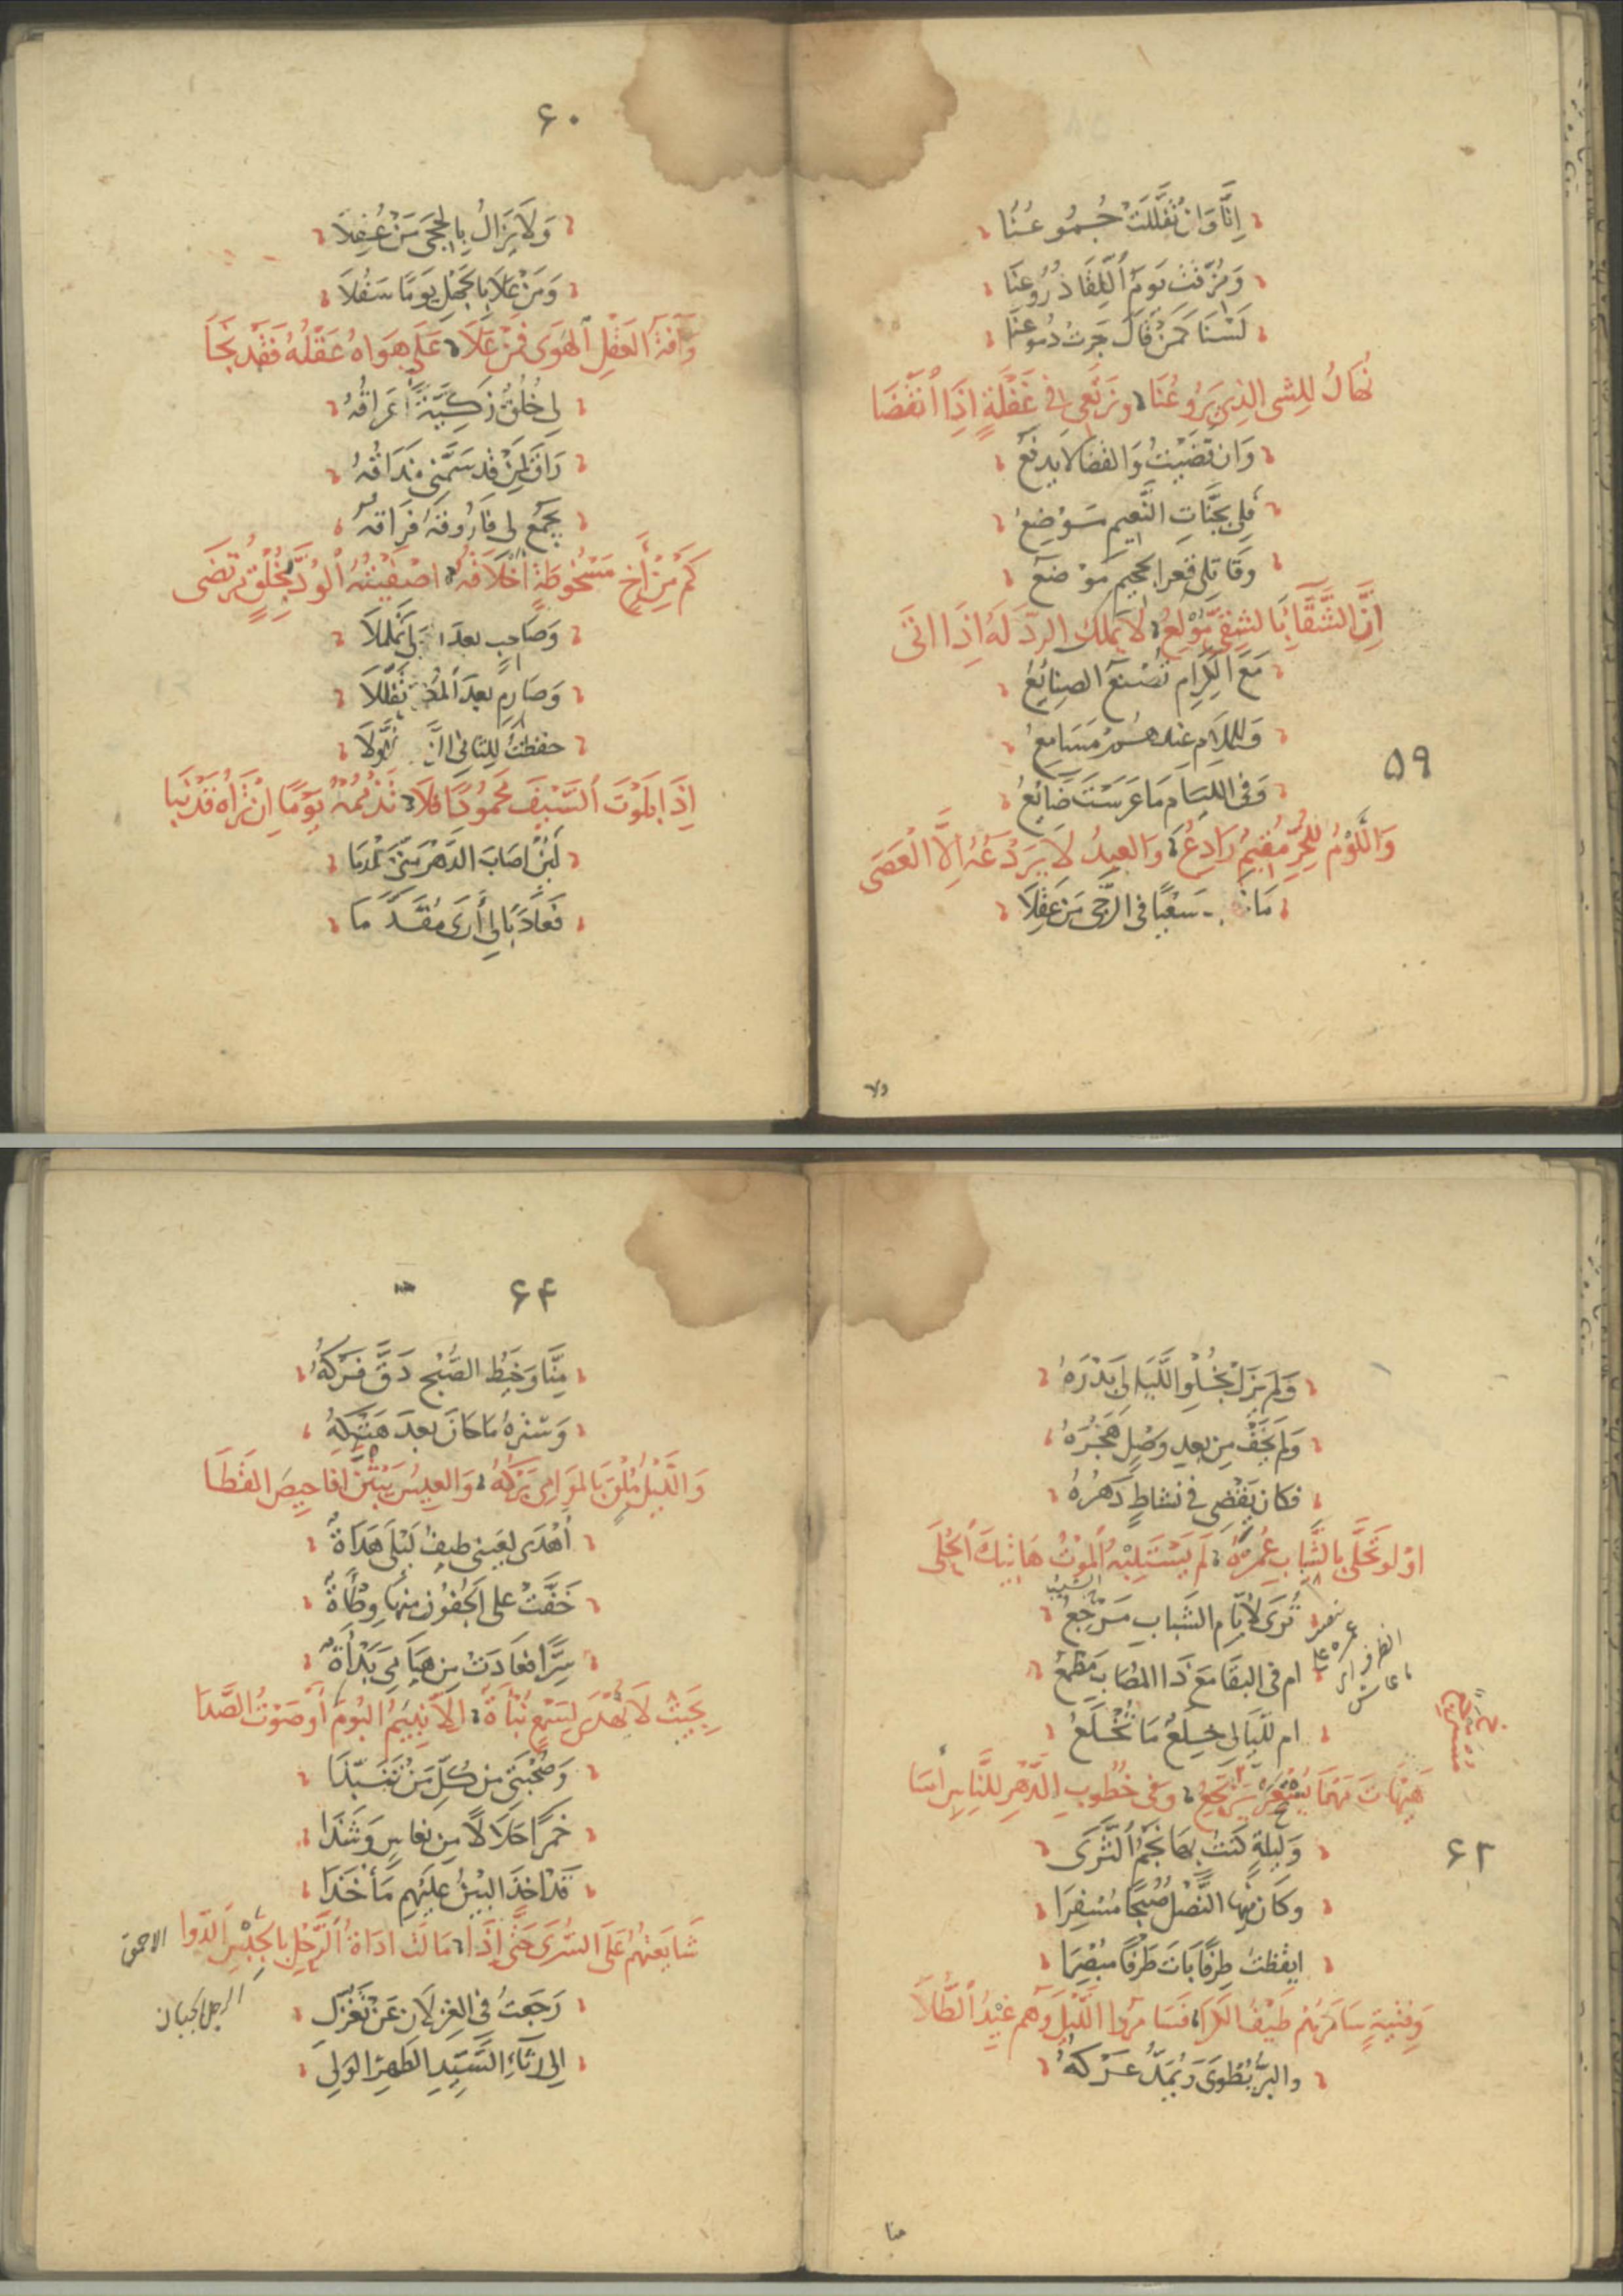 إِنَّا وَإِنْ تَفَلَّلَتْ جُمُوعُنَا
وَمُزِّقَتْ يَوْمَ اللِّقَا دُرُوعُنَا
لَسْنَا كَمَنْ قَالَ جَرَتْ دُمُوعُنَا
نُهَالُ لِلشَّيِ الَّذِي يَرُوعُنَا وَنَرْتَعِي فِي غَفْلَةٍ إِذَا انْقَضَا
وَإِنْ قَضَيْتُ وَالْقَضَا لَا يُدْفَعُ
فَلِي بِجَنَّاتِ النَّعِيمِ مَوْضِعُ
وَقَاتِلِي قَعْرَ الجَحِيمِ مَوْضِعُ
إِنَّ الشَّقَا بِالشَّقِيِّ مُولَعُ لَا يَمْلِكُ الرَّدَّ لَهُ إِذَا أَتَى
مَعَ الْكِرَامِ تُصْنَعُ الصَّنَائِعُ
وَلِلْكَلَامِ عِنْدَهُمْ مَسَامِعُ
وَفِي اللِّئَامِ مَا غَرَسْتَ ضَائِعُ
۵۹
وَاللَّوْمُ لِلْحُرِّ مُقِيمٌ رَادِعُ وَالْعَبْدُ لَا يَرْدَعُهُ إِلَّا الْعَصَى
سَعْيًا فِي الرَّجَى مَنْ غَفِلَا
ولا
۶۰
وَلَا يَزَالُ بِالْحِجَى مَنْ عُقِلَا
وَمَنْ عَلَا بِالْجَهْلِ يَوْمًا سَفُلَا
وَآفَةُ الْعَقْلِ الْهَوَى فَمَنْ عَلَا عَلَى هَوَاهُ عَقْلُهُ فَقَدْ نَجَا
لِي خُلُقٌ زَكِيَّةٌ أَعْرَاقُهُ
رَاقَ لِمَنْ قَدْ سَمَّنِي مَذَاقُهُ
يَجْمَعُ لِي فَارُوقَهُ فِرَاقُهُ
كَمْ مِنْ أَخٍ مَسْخُوطَةٍ أَخْلَاقُهُ أَصْفَيْتُهُ الْوُدَّ بِخُلْقٍ مُرْتَضَى
وَصَاحِبٍ بعد تَمَلْمَلَا
وَصَارِمٍ بَعْدَ تَفَلَّلَا
حفظت لِلثَّانِي
إِذَا بَلَوْتَ السَّيْفَ مَحْمُودًا فَلَا تَذْمُمْهُ يَوْمًا إِنْ تَرَاهُ قَدْ نَبَا
لَئِنْ أَصَابَ الدَّهْرُ مِنِّي ثَلْمَا
فَعَادَ بَالِي أَرَى مُقَدَّمَا
وَلَمْ يَزَلْ يَجْلُو اللَّيَالِي بَدْرَهُ
وَلَمْ يَخَفْ مِنْ بَعْدِ وَصْلٍ هَجْرَهُ
فَكَانَ يَقْضِي فِي نَشَاطٍ دَهْرَهُ
أَوْ لَوْ تَحَلَّى بِالشَّبَابِ عُمْرَهُ لَمْ يَسْتَلِبْهُ الْمَوْتُ هَاتِيكَ الْحُلَى
تُرَى لِأَيَّامِ الشَّبَابِ مَرْجِعُ
أَمْ فِي الْبَقَا مَعَ ذَا الْمُصَابِ مَطْمَعُ
أَمْ لِلَّيَالِي خِلَعٌ مَا تُخْلَعُ
هَيْهَاتَ مَهْمَا يُسْتَعَرْ يُسْتَرْجَعُ وَفِي خُطُوبِ الدَّهْرِ لِلنَّاسِ أُسَا
وَلَيْلَةٍ كُنْتُ بِهَا نَجْمَ الثَّرَى
۶۳
وَكَانَ فِيهَا النَّصْلُ صُبْحًا مُسْفِرَا
أَيْقَظْتُ طِرْفًا بَاتَ طَرْفًا مُبْصِرَا
وَفِتْيَةٍ سَامَرَهُمْ طَيْفُ الْكَرَى فَسَامَرُوا اللَّيْلَ وَهُمْ غِيدُ الطُّلَا
وَالْبَرُّ يُطْوَى وَيُمَدُّ عَرْكُهُ
منا
۶۴
مِنَّا وَخَيْطُ الصُّبْحِ دَقَّ فَرْكُهُ
وَسِتْرُهُ مَا حَانَ بَعْدُ هَتْكُهُ
وَاللَّيْلُ مُلْقٍ بِالْمَوَامِي بَرْكَهُ وَالْعِيسُ يَنْبُثْنَ أَفَاحِيصَ الْقَطَا
أَهْدَى لِعَيْنِي طَيْفُ لَيْلَى هَدْأَةً
خَفَّتْ عَلَى الْجُفُونِ مِنْهَا وَطْأَةً
سِرًّا فَعَادَتْ مِنْ هَيَامِي بَدْأَةً
بِحَيْثُ لَا تُهْدَى لِسَمْعٍ نَبْأَةٌ إِلَّا نَئِيمُ الْبُومِ أَوْ صَوْتُ الصَّدَا
وَصُحْبَتِي مِنْ كُلِّ مَنْ تَنَبَّذَا
خَمْرًا حَلَالًا مِنْ نُعَاسٍ وَشَذَا
قَدْ أَخَذَ الْبَيْنُ عَلَيْهِمْ مَأْخَذَا
شَايَعْتُهُمْ عَلَى السُّرَى حَتَّى إِذَا مَالَتْ أَدَاةُ الرَّحْلِ بِالْجِبْسِ الدَّوَا
الاحمق
الرجل الجبان
رَجَعْتُ فِي الْغِزْلَانِ عَنْ تَغَزُّلِ
إِلَى رِثَاءِ السَّيِّدِ الطُّهْرِ الْوَلِي